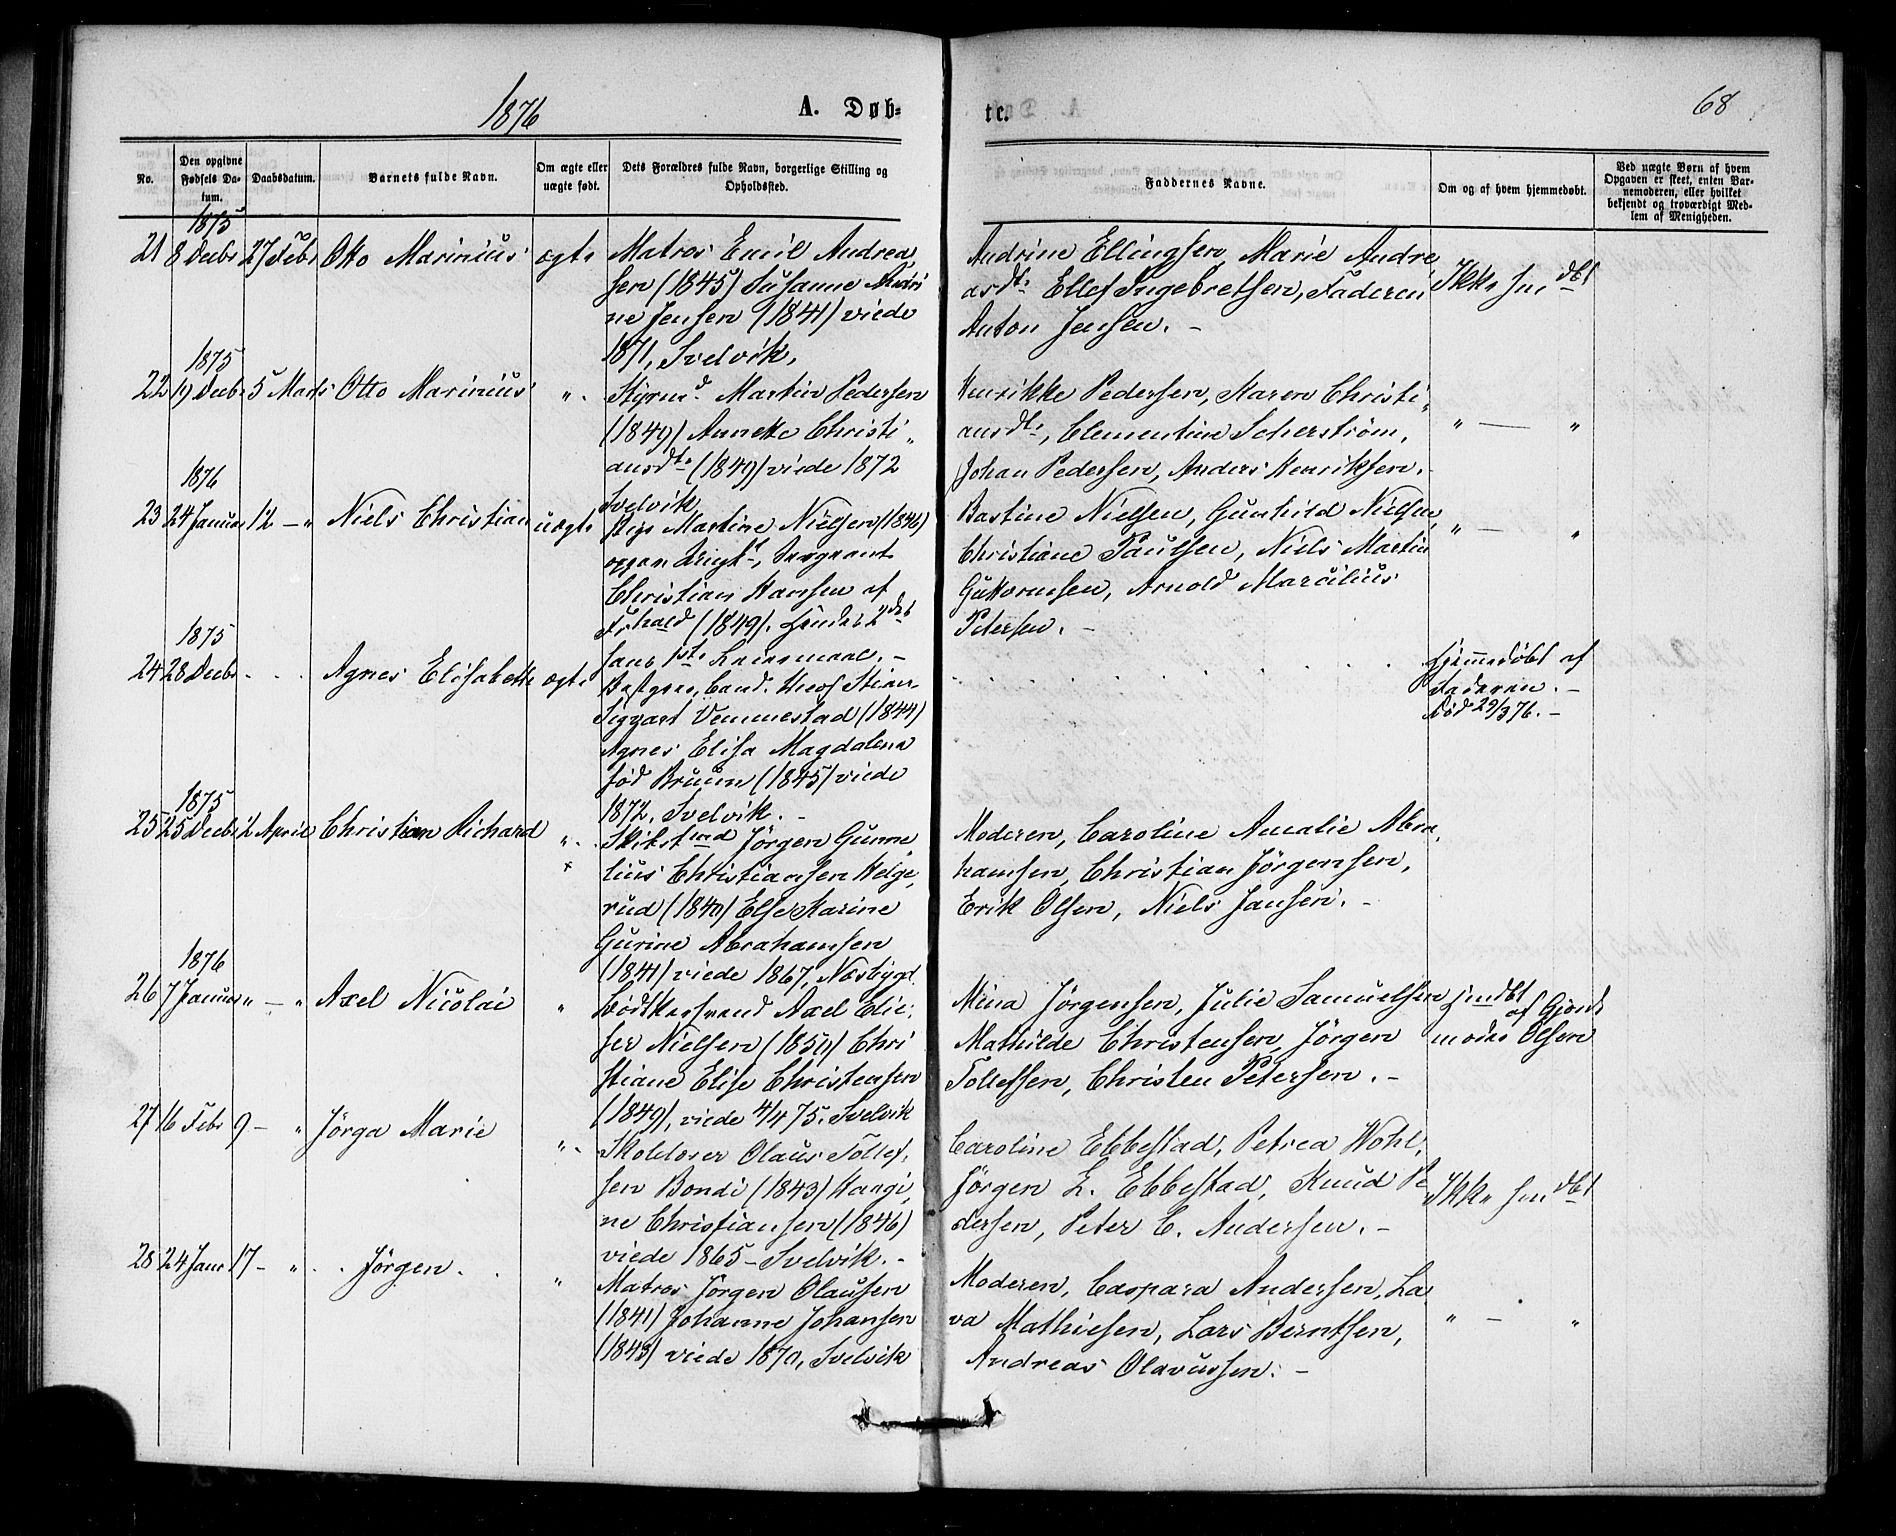 1876
A. Døb-
tc.
68
No.
Den opgivne Fødsels Da-
tum.
Daabsdatum.
Barnets fulde Navn.
Om ægte eller
uægte født.
Dets Forældres fulde Navn, borgerlige Stilling og
Opholdssted.
Faddernes Navne.
Om og af hvem hjemmedøbt.
Ved uægte Børn af hvem
Opgaven er skeet, enten Bar-
nemoderen, eller hvilket
bekjendt og troværdigt Med-
lem af Menigheden.
1875
21 8 Decbr 27 Febr Otto Marinius ægte
Matros Emil Andrea,
sen (1845) Susanne Andri
ne Jensen (1841) viede
1871, Svelvik.
Andrine Ellingsen, Marie Andre,
asdtr Ellef Ingebretsen, Faderen
Anton Jensen. -
Ikke hm dbt
1875
22 19 Decbr 5 Marts Otto Marinius " .
Styrmd. Martin Pedersen
(1849) Annette Christi "
ansdtr (1849) viede 1872
Svelvik
Henrikke Pedersen, Karen Christi "
ansdtr, Clementine Scherstrøm,
Johan Pedersen, Anders Henriksen.
" — "
1876
23 24 Januar 12 - " Niels Christian uægte
Pige Martine Nielsen (1846)
Sergeant
Christian Hansen af
(1849). Hendes 2det
hans 1ste Leiermaal. -
Bastine Nielsen, Gunhild Nielsen,
Christiane Paulsen, Niels Martin
Guttormsen, Arnold Marcilius
Petersen. -
" — "
1875
24 28 Decbr . . . Agnes Elisabeth ægte
Cand. theol Stian
Sigvart Vemmestad (1844)
Agnes Elisa Magdalena
fød Bruun (1845) viede
1872. Svelvik. -
Hjemmedøbt af
Faderen. -
Død 29/3 76. -
1875
25 25 Decbr 2 April Christian Richard " .
+
Jørgen Gunne
lius Christiansen Helge,
rud (1840) Else Karine
Gurine Abrahamsen
(1841) viede 1867, Næsbygd.
Moderen, Caroline Amalie Abra,
hamsen, Christian Jørgensen,
Erik Olsen, Niels Jansen. -
1876
26 7 Januar " - " Axel Nicolai "
Bødkersvend Axel Elie,
ser Nielsen (1850) Chri
stiane Elise Christensen
(1849), viede 4/4 75. Svelvik
Mina Jørgensen, Julie Samuelsen
Mathilde Christensen, Jørgen
Tollefsen, Christen Petersen. -
hmdbt
af Gjord
moder Olsen
27 16 Febr 9 - " Jörga Marie " .
Skolelærer Olaus Tollef,
sen Bondi (1843) Hangi,
ne Christiansen (1846)
viede 1865 - Svelvik. -
Caroline Ebbestad, Petrea Wohl,
Jörgen L. Ebbestad, Knud Pe
dersen, Peter C. Andersen. -
Ikke hm dbt
28 24 Janr 17 - " . . Jörgen . . "
Matros Jörgen Olausen
(1841) Johanne Johansen
(1843) viede 1870, Svelvik
Moderen, Caspara Andersen, La,
va Mathiesen, Lars Berntsen,
Andreas Olavussen. -
" - "